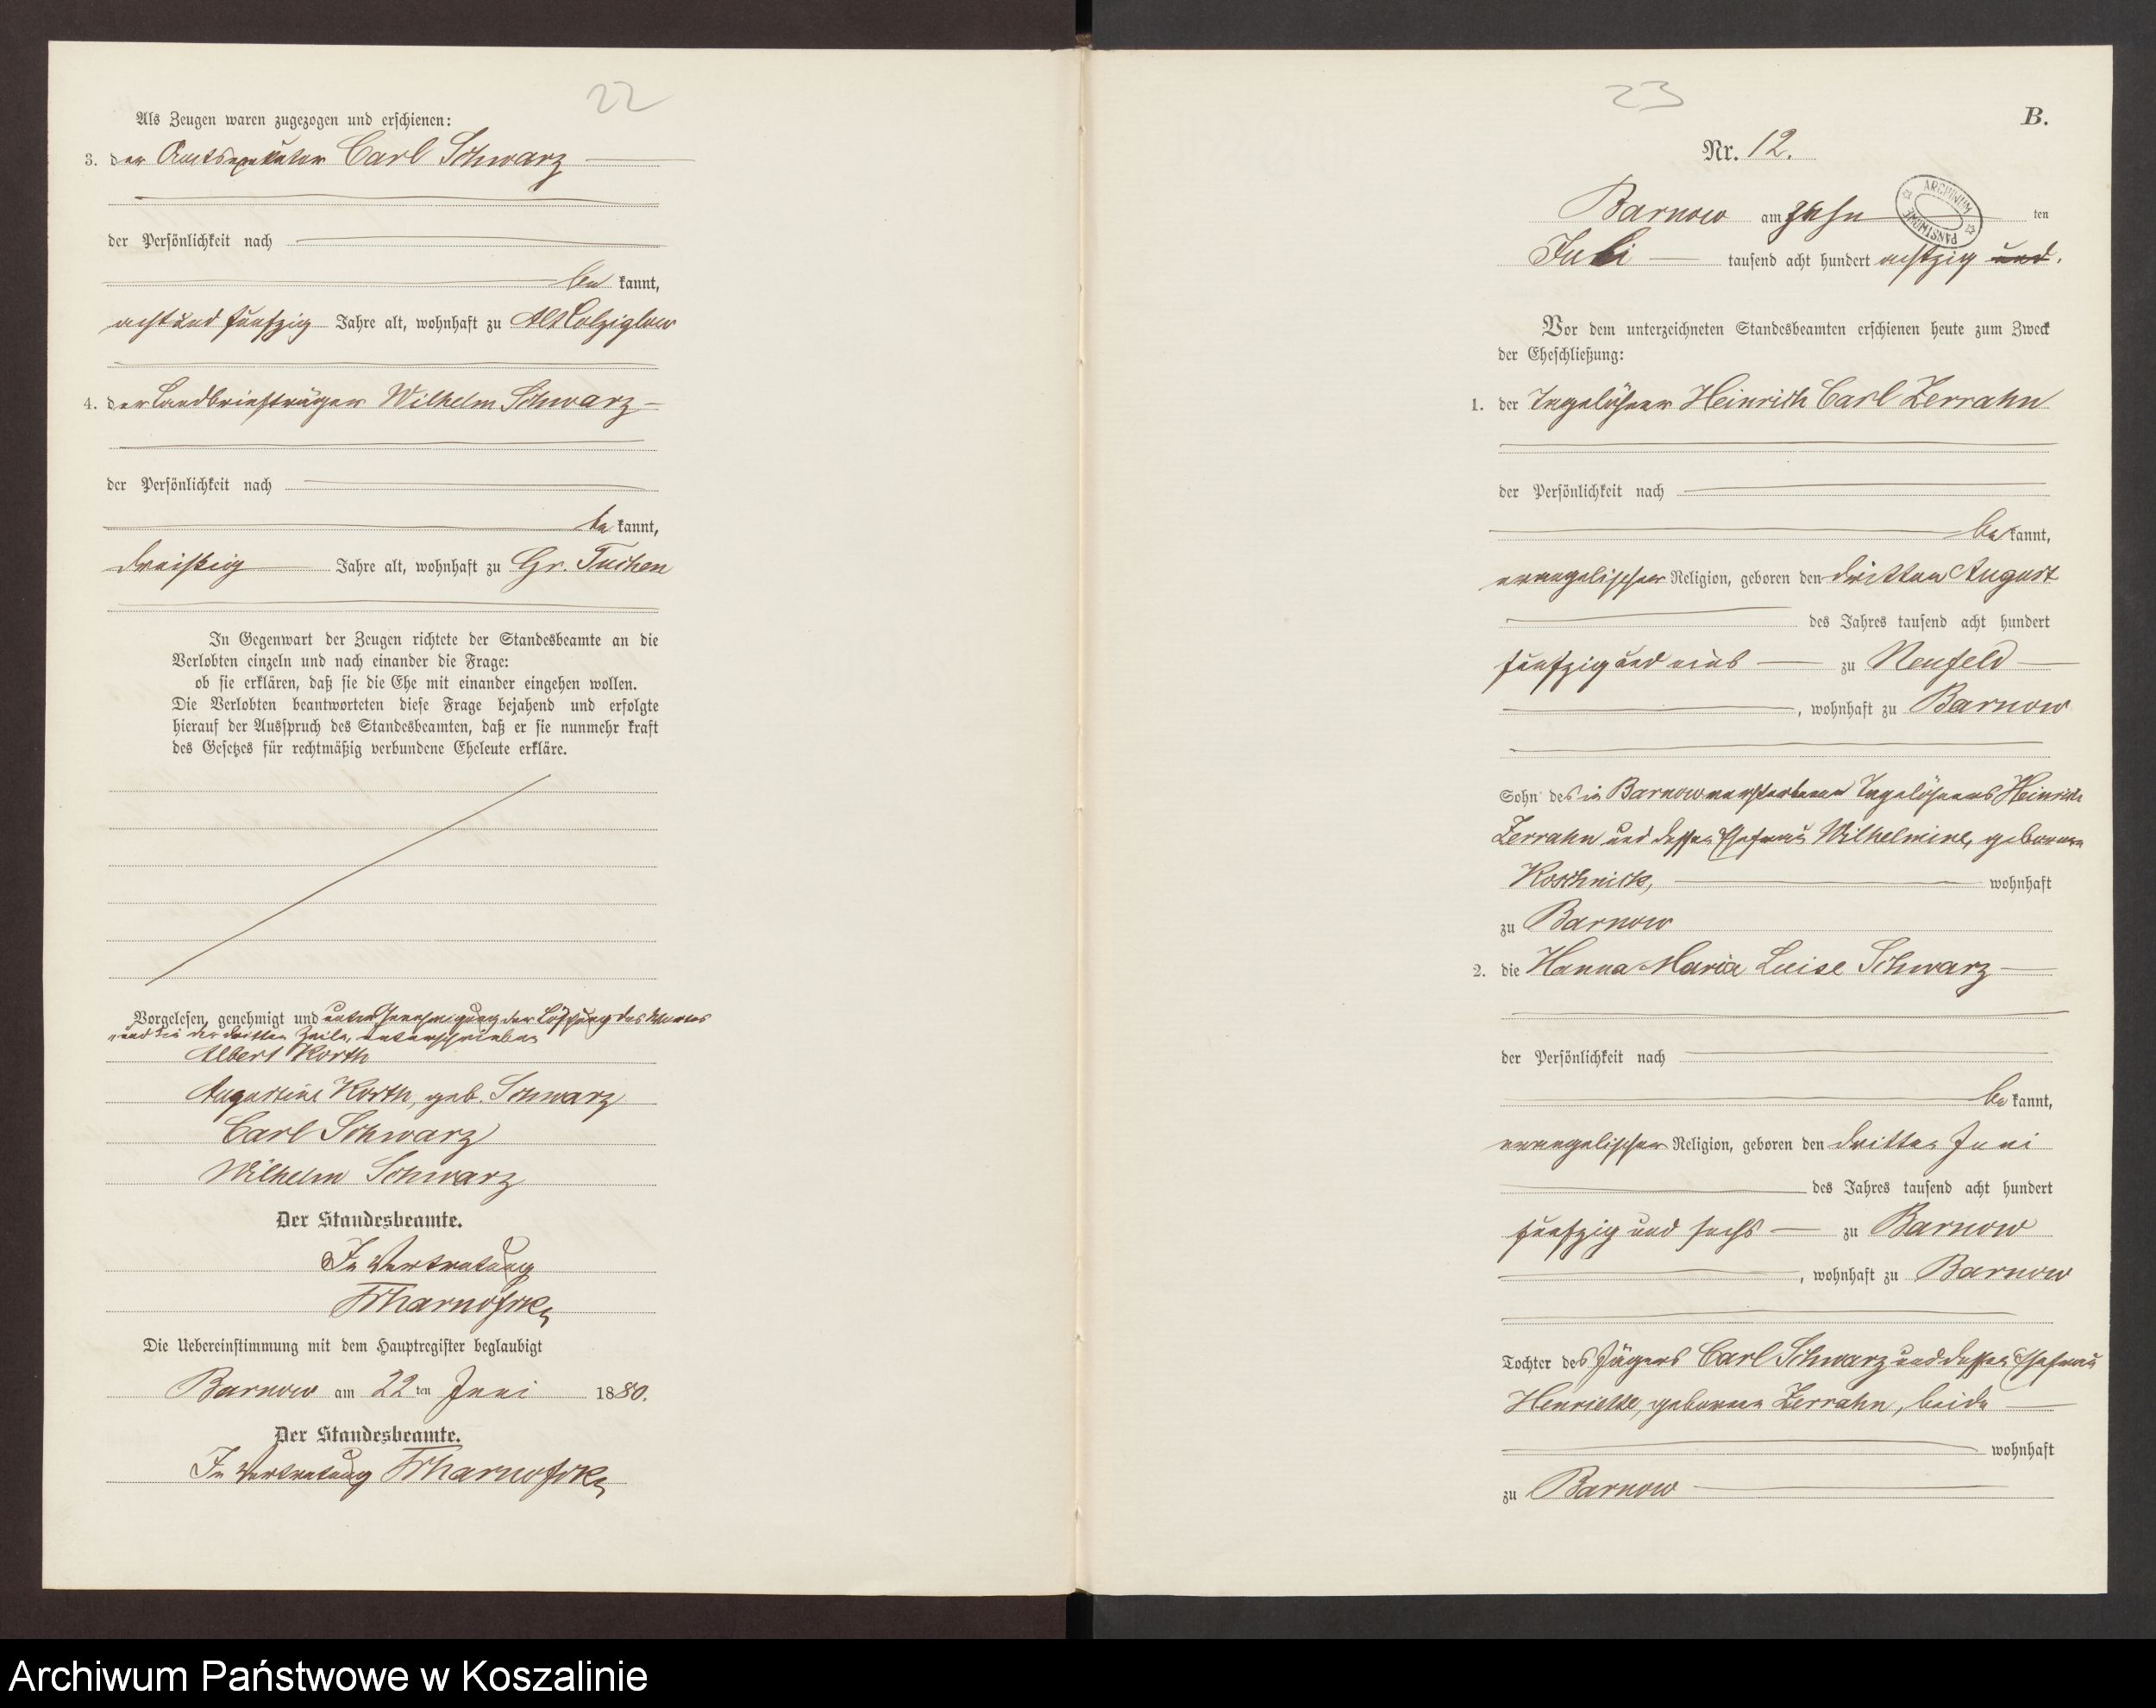 22
Als Zeugen waren zugezogen und erschienen:
3. der Amtsexekutor Carl Schwarz
der Persönlichkeit nach
be kannt,
acht und fünfzig Jahre alt, wohnhaft zu Alt Colziglow
4. der Landbriefträger Wilhelm Schwarz
der Persönlichkeit nach
be kannt,
dreißig Jahre alt, wohnhaft zu Gr. Tuchen
In Gegenwart der Zeugen richtete der Standesbeamte an die
Verlobten einzeln und nach einander die Frage:
ob sie erklären, daß sie die Ehe mit einander eingehen wollen.
Die Verlobten beantworteten diese Frage bejahend und erfolgte
hierauf der Ausspruch des Standesbeamten, daß er sie nunmehr kraft
des Gesetzes für rechtmäßig verbundene Eheleute erkläre.
Vorgelesen, genehmigt und unter Genehmigung der Löschung des Wortes
"und" in der dritten Zeile, unterschrieben
Albert Korth
Augustine Korth, geb. Schwarz
Carl Schwarz
Wilhelm Schwarz
Der Standesbeamte.
In Vertretung
Die Uebereinstimmung mit dem Hauptregister beglaubigt
Barnow am 22 ten Juni 1880.
Der Standesbeamte.
In Vertretung
23
B.
Nr. 12.
ARCHIWUM PAŃSTWOWE
Barnow am zehn ten
Juli tausend acht hundert achtzig und.
Vor dem unterzeichneten Standesbeamten erschienen heute zum Zweck
der Eheschließung:
1. der Tagelöhner Heinrich Carl Zerrahn
der Persönlichkeit nach
be kannt,
evangelischer Religion, geboren den dritten August
des Jahres tausend acht hundert
fünfzig und eins zu Neufeld
, wohnhaft zu Barnow
Sohn des in Barnow verstorbenen Tagelöhners Heinrich
Zerrahn und dessen Ehefrau Wilhelmine, geborenen
Koschnick, wohnhaft
zu Barnow
2. die Hanna Maria Luise Schwarz
der Persönlichkeit nach
be kannt,
evangelischer Religion, geboren den dritten Juni
des Jahres tausend acht hundert
fünfzig und sechs zu Barnow
, wohnhaft zu Barnow
Tochter des Jägers Carl Schwarz und dessen Ehefrau
Henriette, geborenen Zerrahn, beide
wohnhaft
zu Barnow
Archiwum Państwowe w Koszalinie